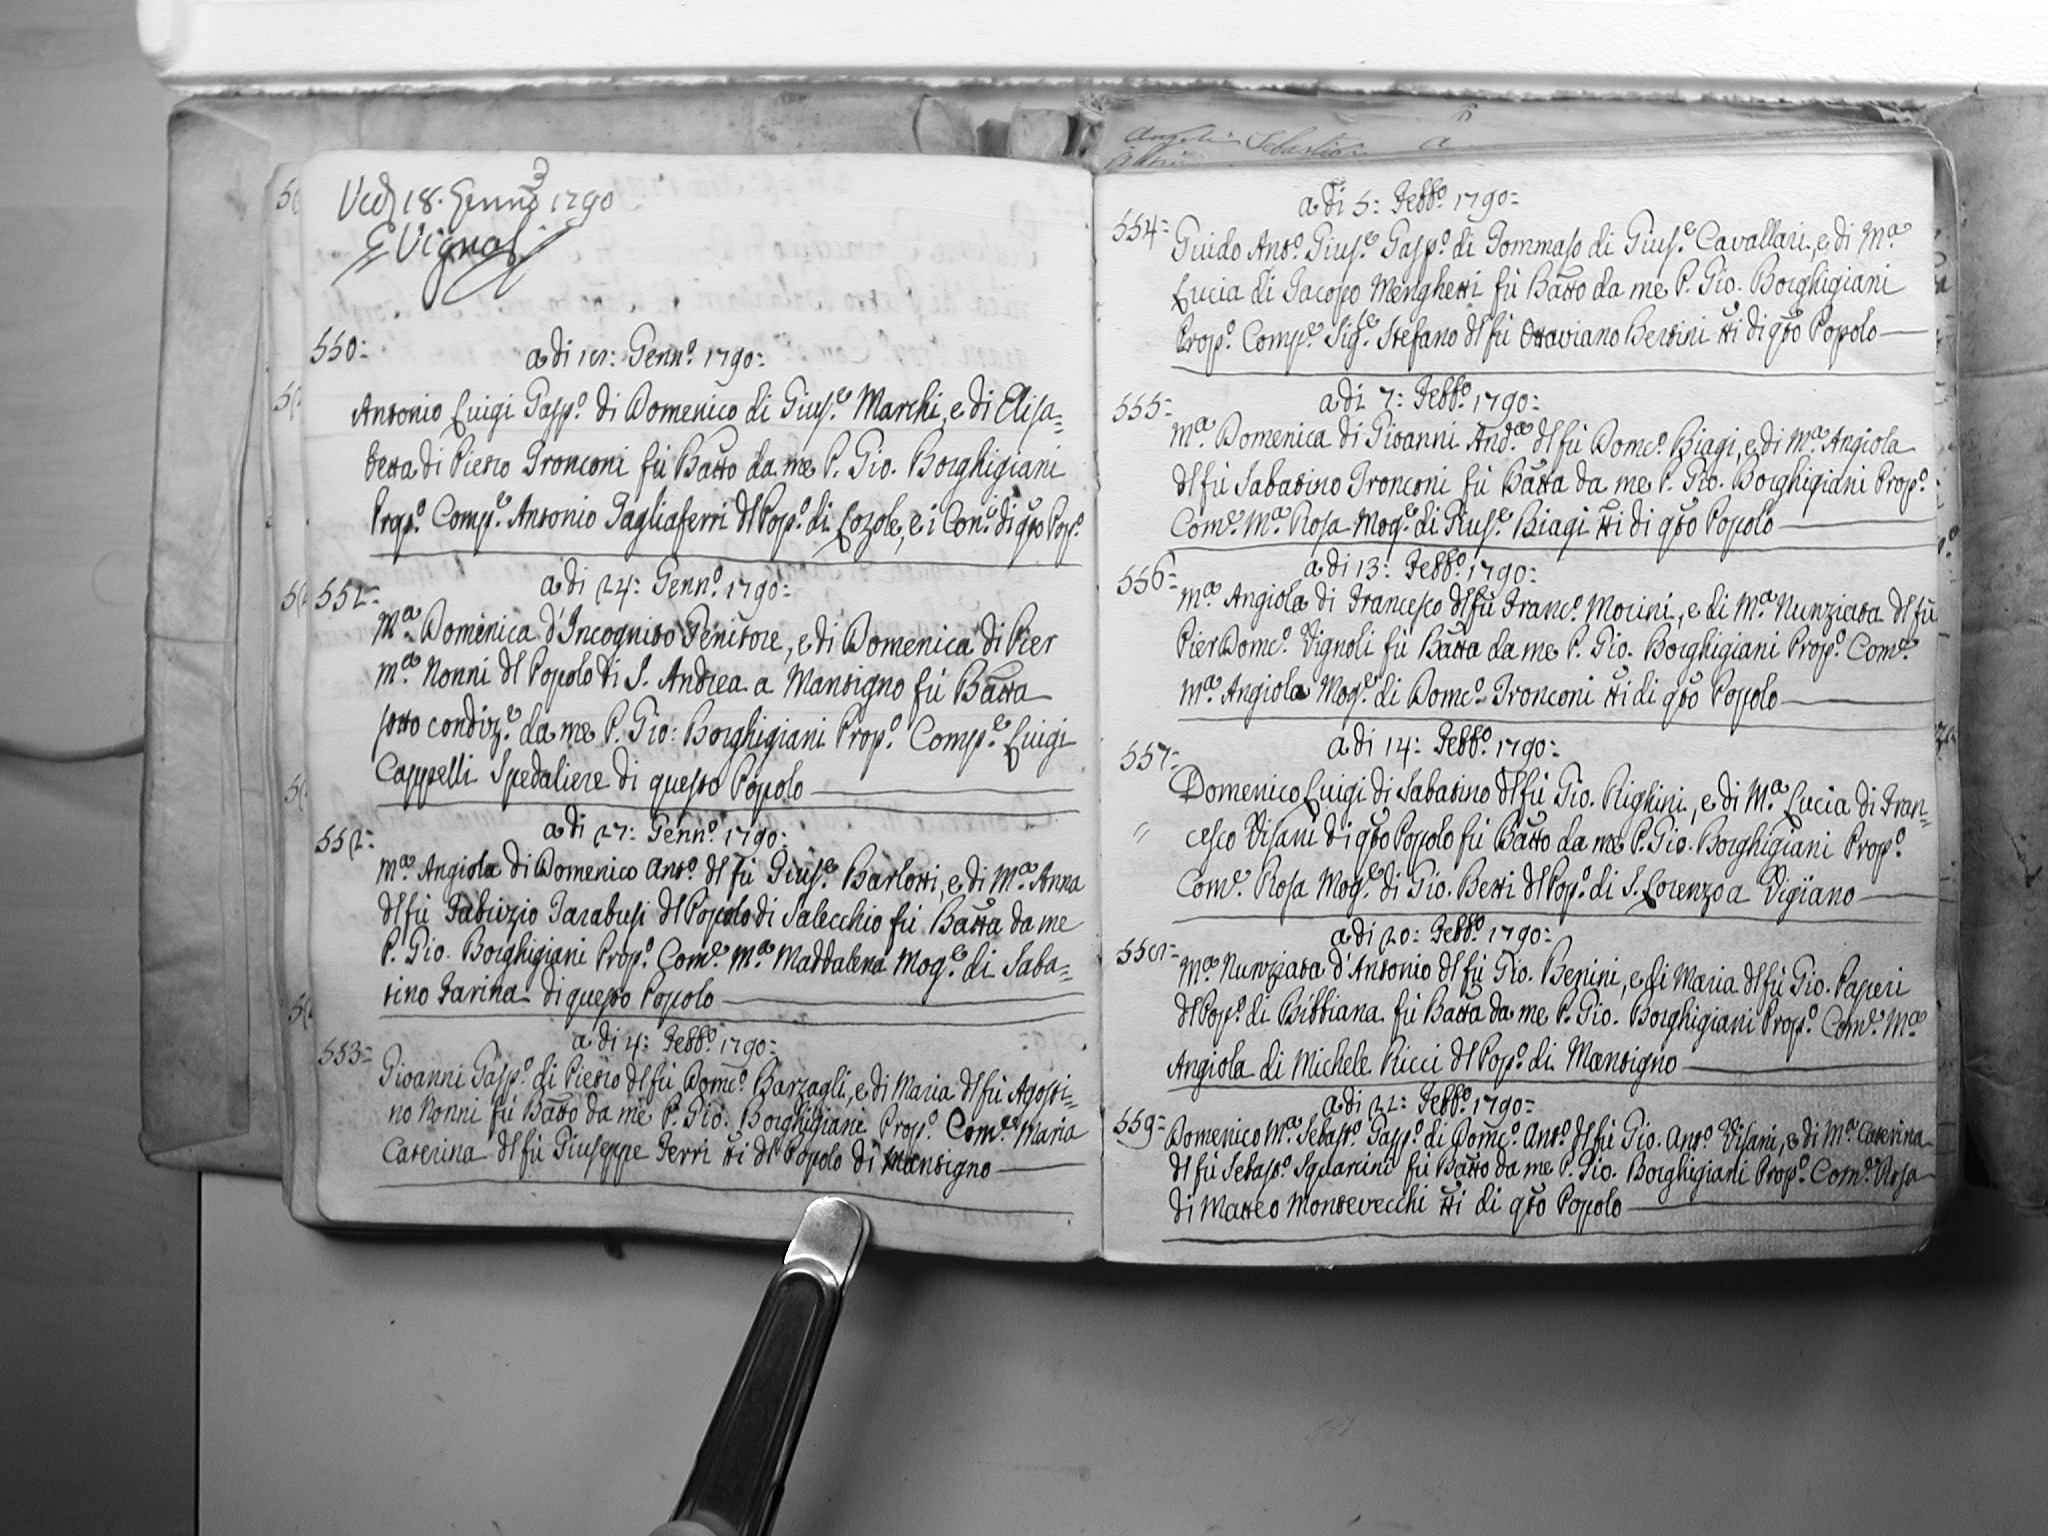 Ved. 18. Genn. 1790
G Vignoli
550:
a di 18: Genn.º 1790:
Antonio Luigi Gasp.º di Domenico di Gius.e Marchi, e di Elisa=
betta di Pietro Tronconi fù Batto da me P. Gio. Borghigiani
Prop.º Comp.e Antonio Tagliaferri dl Pop.º di Lozole, e i Con.i di qto Pop.º
551:
a di 24: Genn.º 1790:
M.a Domenica d'Incognito Genitore, e di Domenica di Pier
m.a Nonni dl Popolo di S. Andrea a Mantigno fù Batta
sotto condiz.e da me P. Gio: Borghigiani Prop.º Comp.e Luigi
Cappelli Spedaliere di questo Popolo
552:
a di 27: Genn.º 1790:
M.a Angiola di Domenico Ant.º dl fù Gius.e Barlotti, e di M.a Anna
dl fù Fabrizio Tarabusi dl Popolo di Salecchio fù Batta da me
P. Gio. Borghigiani Prop.º Com.e M.a Maddalena Mog.e di Saba=
tino Farina di questo Popolo
553:
a di 4: Febb.º 1790:
Gioanni Gasp.º di Pietro dl fù Domc.º Barzagli, e di Maria dl fù Agosti=
no Nonni fù Batto da me P. Gio. Borghigiani Prop.º Com.e Maria
Caterina dl fù Giuseppe Ferri tti dl Popolo di Mantigno
a di 5: Febb.º 1790:
554:
Guido Ant.º Gius.e Gasp.º di Tommaso di Gius.e Cavallari, e di M.a
Lucia di Jacopo Menghetti fù Batto da me P. Gio. Borghigiani
Prop.º Comp.e Sig.e Stefano dl fù Ottaviano Bertini tti di qto Popolo
a di 7: Febb.º 1790:
555:
M.a Domenica di Gioanni And.a dl fù Domc.º Biagi, e di M.a Angiola
dl fù Sabatino Tronconi fù Batta da me P. Gio. Borghigiani Prop.º
Com.e M.a Rosa Mog.e di Gius.e Biagi tti di qto Popolo
a di 13: Febb.º 1790:
556:
M.a Angiola di Francesco dl fù Franc.º Morini, e di M.a Nunziata dl fù
Pier Domc.º Vignoli fù Batta da me P. Gio. Borghigiani Prop.º Com.e
M.a Angiola Mog.e di Domc.º Tronconi tti di qto Popolo
a di 14: Febb.º 1790:
557:
Domenico Luigi di Sabatino dl fù Gio. Righini, e di M.a Lucia di Fran=
cesco Visani di qto Popolo fù Batto da me P. Gio. Borghigiani Prop.º
Com.e Rosa Mog.e di Gio. Betti dl Pop.º di S. Lorenzo a Vigiano
a di 20: Febb.º 1790:
558:
M.a Nunziata d'Antonio dl fù Gio. Benini, e di Maria dl fù Gio. Paperi
dl Pop.º di Bibbiana fù Batta da me P. Gio. Borghigiani Prop.º Com.e M.a
Angiola di Michele Ricci dl Pop.º di Mantigno
a di 22: Febb.º 1790:
559:
Domenico M.a Sebast.º Gasp.º di Domc.º Ant.º dl fù Gio. Ant.º Visani, e di M.a Caterina
dl fù Sebast.º Squarcini fù Batto da me P. Gio. Borghigiani Prop.º Com.e Rosa
di Matteo Montevecchi tti di qto Popolo